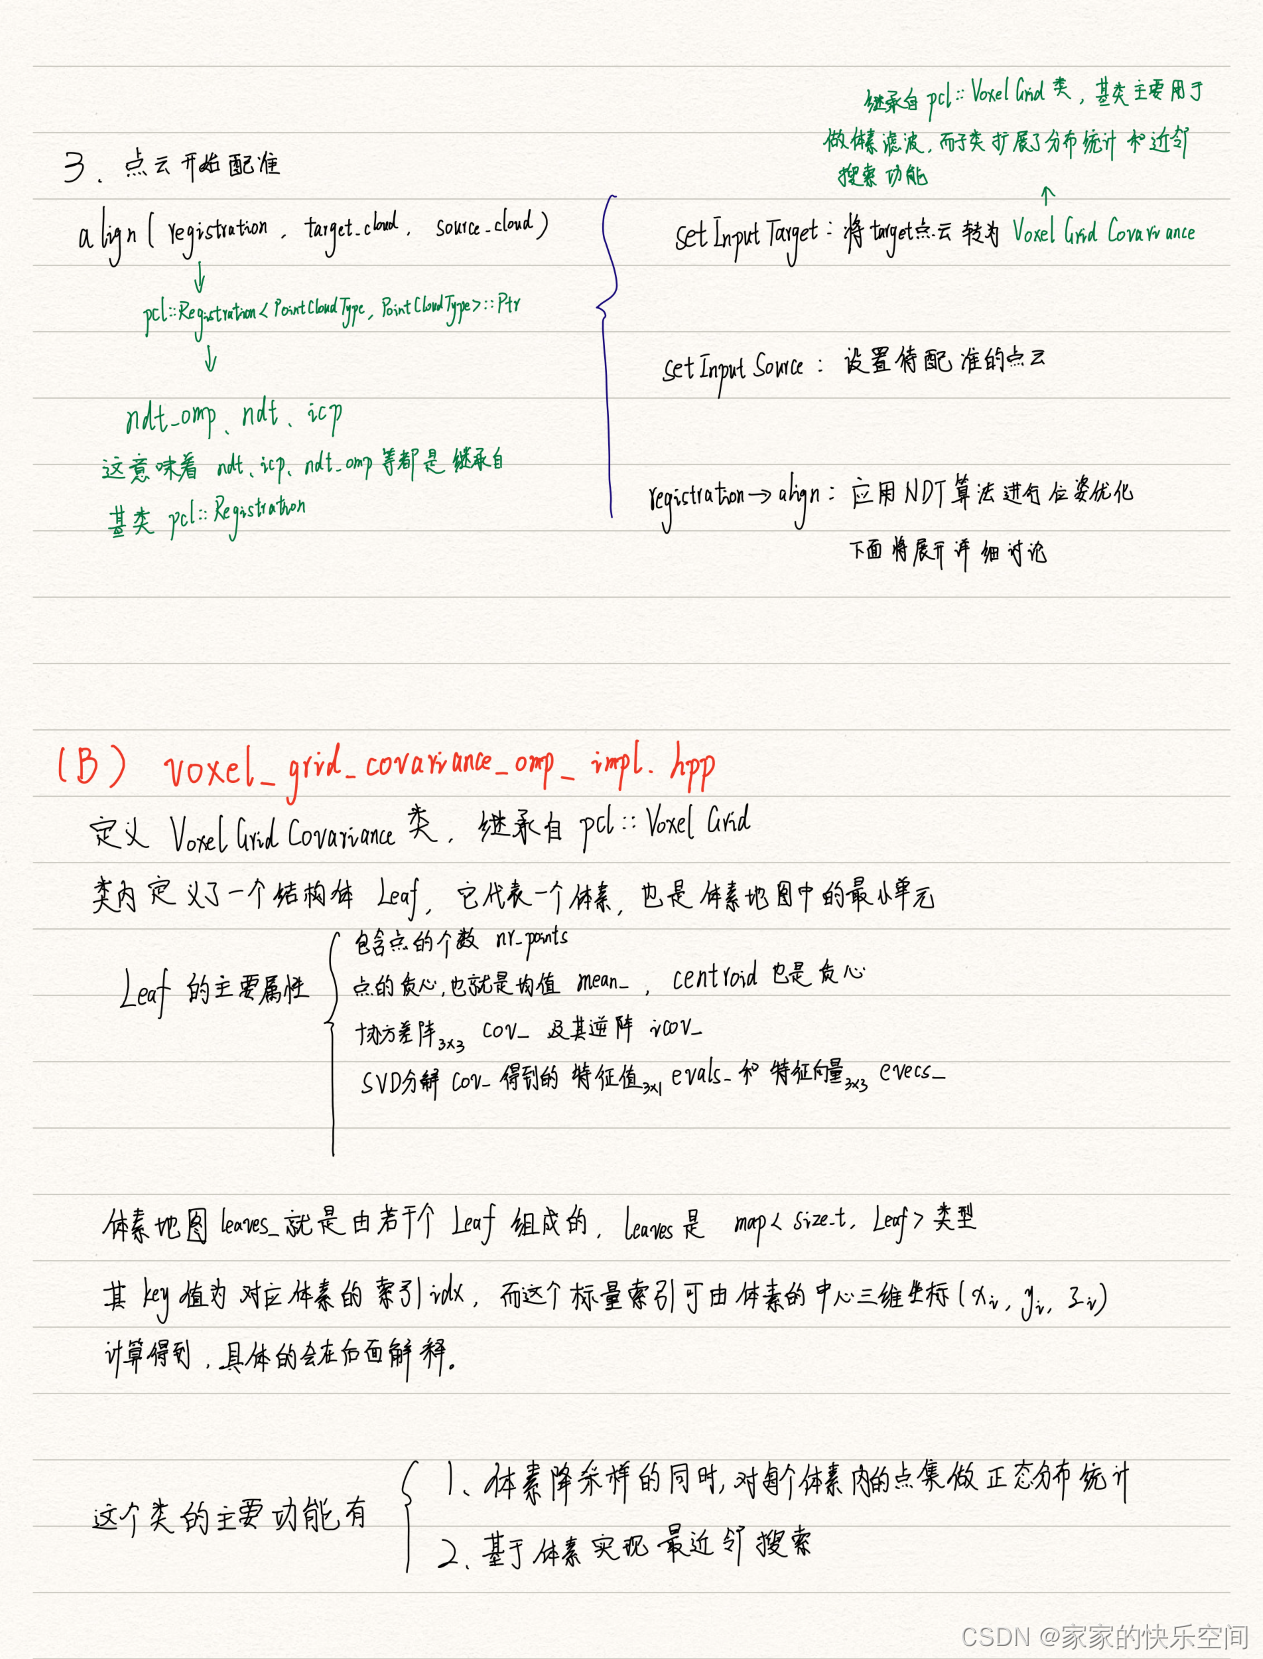 3、点云开始配准
align(registration, target_cloud, source_cloud)
pcl::Registration<PointCloudType, PointCloudType>::Ptr
ndt_omp、ndt、icp
这意味着 ndt、icp、ndt_omp等都是继承自
基类 pcl::Registration
继承自pcl::VoxelGrid类，基类主要用于
做体素滤波,而子类扩展了分布统计和近邻
搜索功能
setInputTarget：将target点云转为VoxelGridCovariance
setInputSource：设置待配准的点云
registration→align：应用NDT算法进行位姿优化
下面将展开详细讨论
(B) voxel_grid_covariance_omp_impl.hpp
定义 VoxelGridCovariance类，继承自 pcl::VoxelGrid
类内定义了一个结构体 Leaf，它代表一个体素，也是体素地图中的最小单元
Leaf 的主要属性
包含点的个数 nr_points
点的质心,也就是均值 mean_ ，centroid 也是质心
协方差阵3x3 cov_ 及其逆阵 icov_
SVD分解 cov_ 得到的 特征值3x1 evals_ 和 特征向量3x3 evecs_
体素地图leaves_就是由若干个 Leaf 组成的，leaves是 map<size_t, Leaf>类型
其 key值为对应体素的索引idx，而这个标量索引可由体素的中心三维坐标(xi, yi, zi)
计算得到，具体的会在后面解释。
这个类的主要功能有
1、体素降采样的同时,对每个体素内的点集做正态分布统计
2、基于体素实现最近邻搜索
CSDN @家家的快乐空间